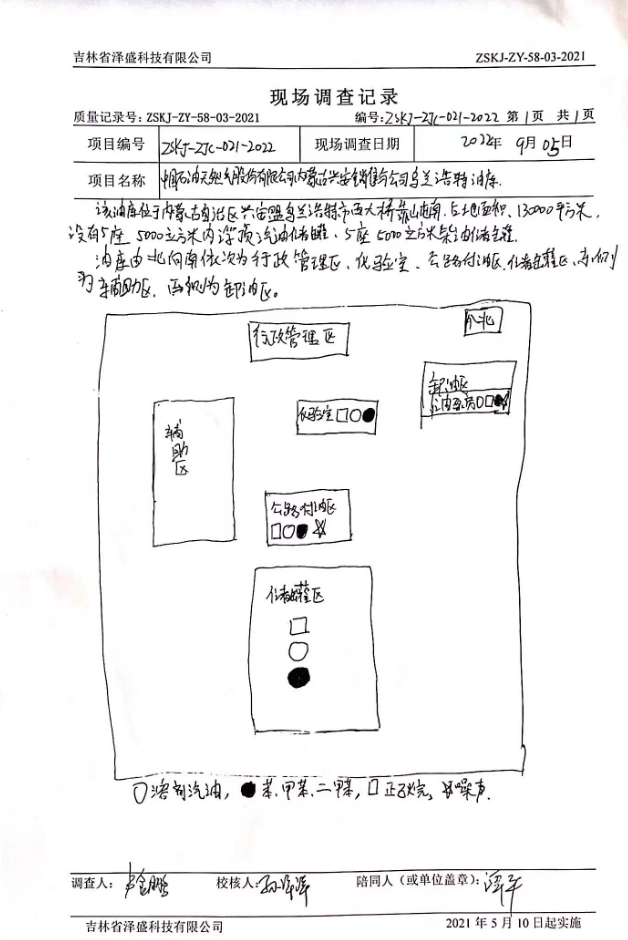 吉林省泽盛科技有限公司 ZSKJ-ZY-58-03-2021
现场调查记录
质量记录号: ZSKJ-ZY-58-03-2021 编号: ZSKJ-ZJC-021-2022 第1页 共1页
项目编号 ZSKJ-ZJC-021-2022 现场调查日期 2022年 9月 05日
项目名称 中国石油天然气股份有限公司内蒙古兴安销售分公司乌兰浩特油库
该油库位于内蒙古自治区兴安盟乌兰浩特市西大桥靠山南, 占地面积, 130000平方米,
设有5座 5000立方米内浮顶汽油储罐、5座 5000立方米柴油储罐.
油库由北向南依次为行政管理区、化验室、公路付油区、储罐区、东侧
为辅助区、西侧为卸油区。
行政管理区
个北
卸油区
化验室
辅助区
公路付油区
储罐区
○溶剂汽油, ●苯、甲苯、二甲苯, □正己烷, 噪声.
调查人: 校核人: 陪同人(或单位盖章):
吉林省泽盛科技有限公司 2021 年 5 月 10 日起实施